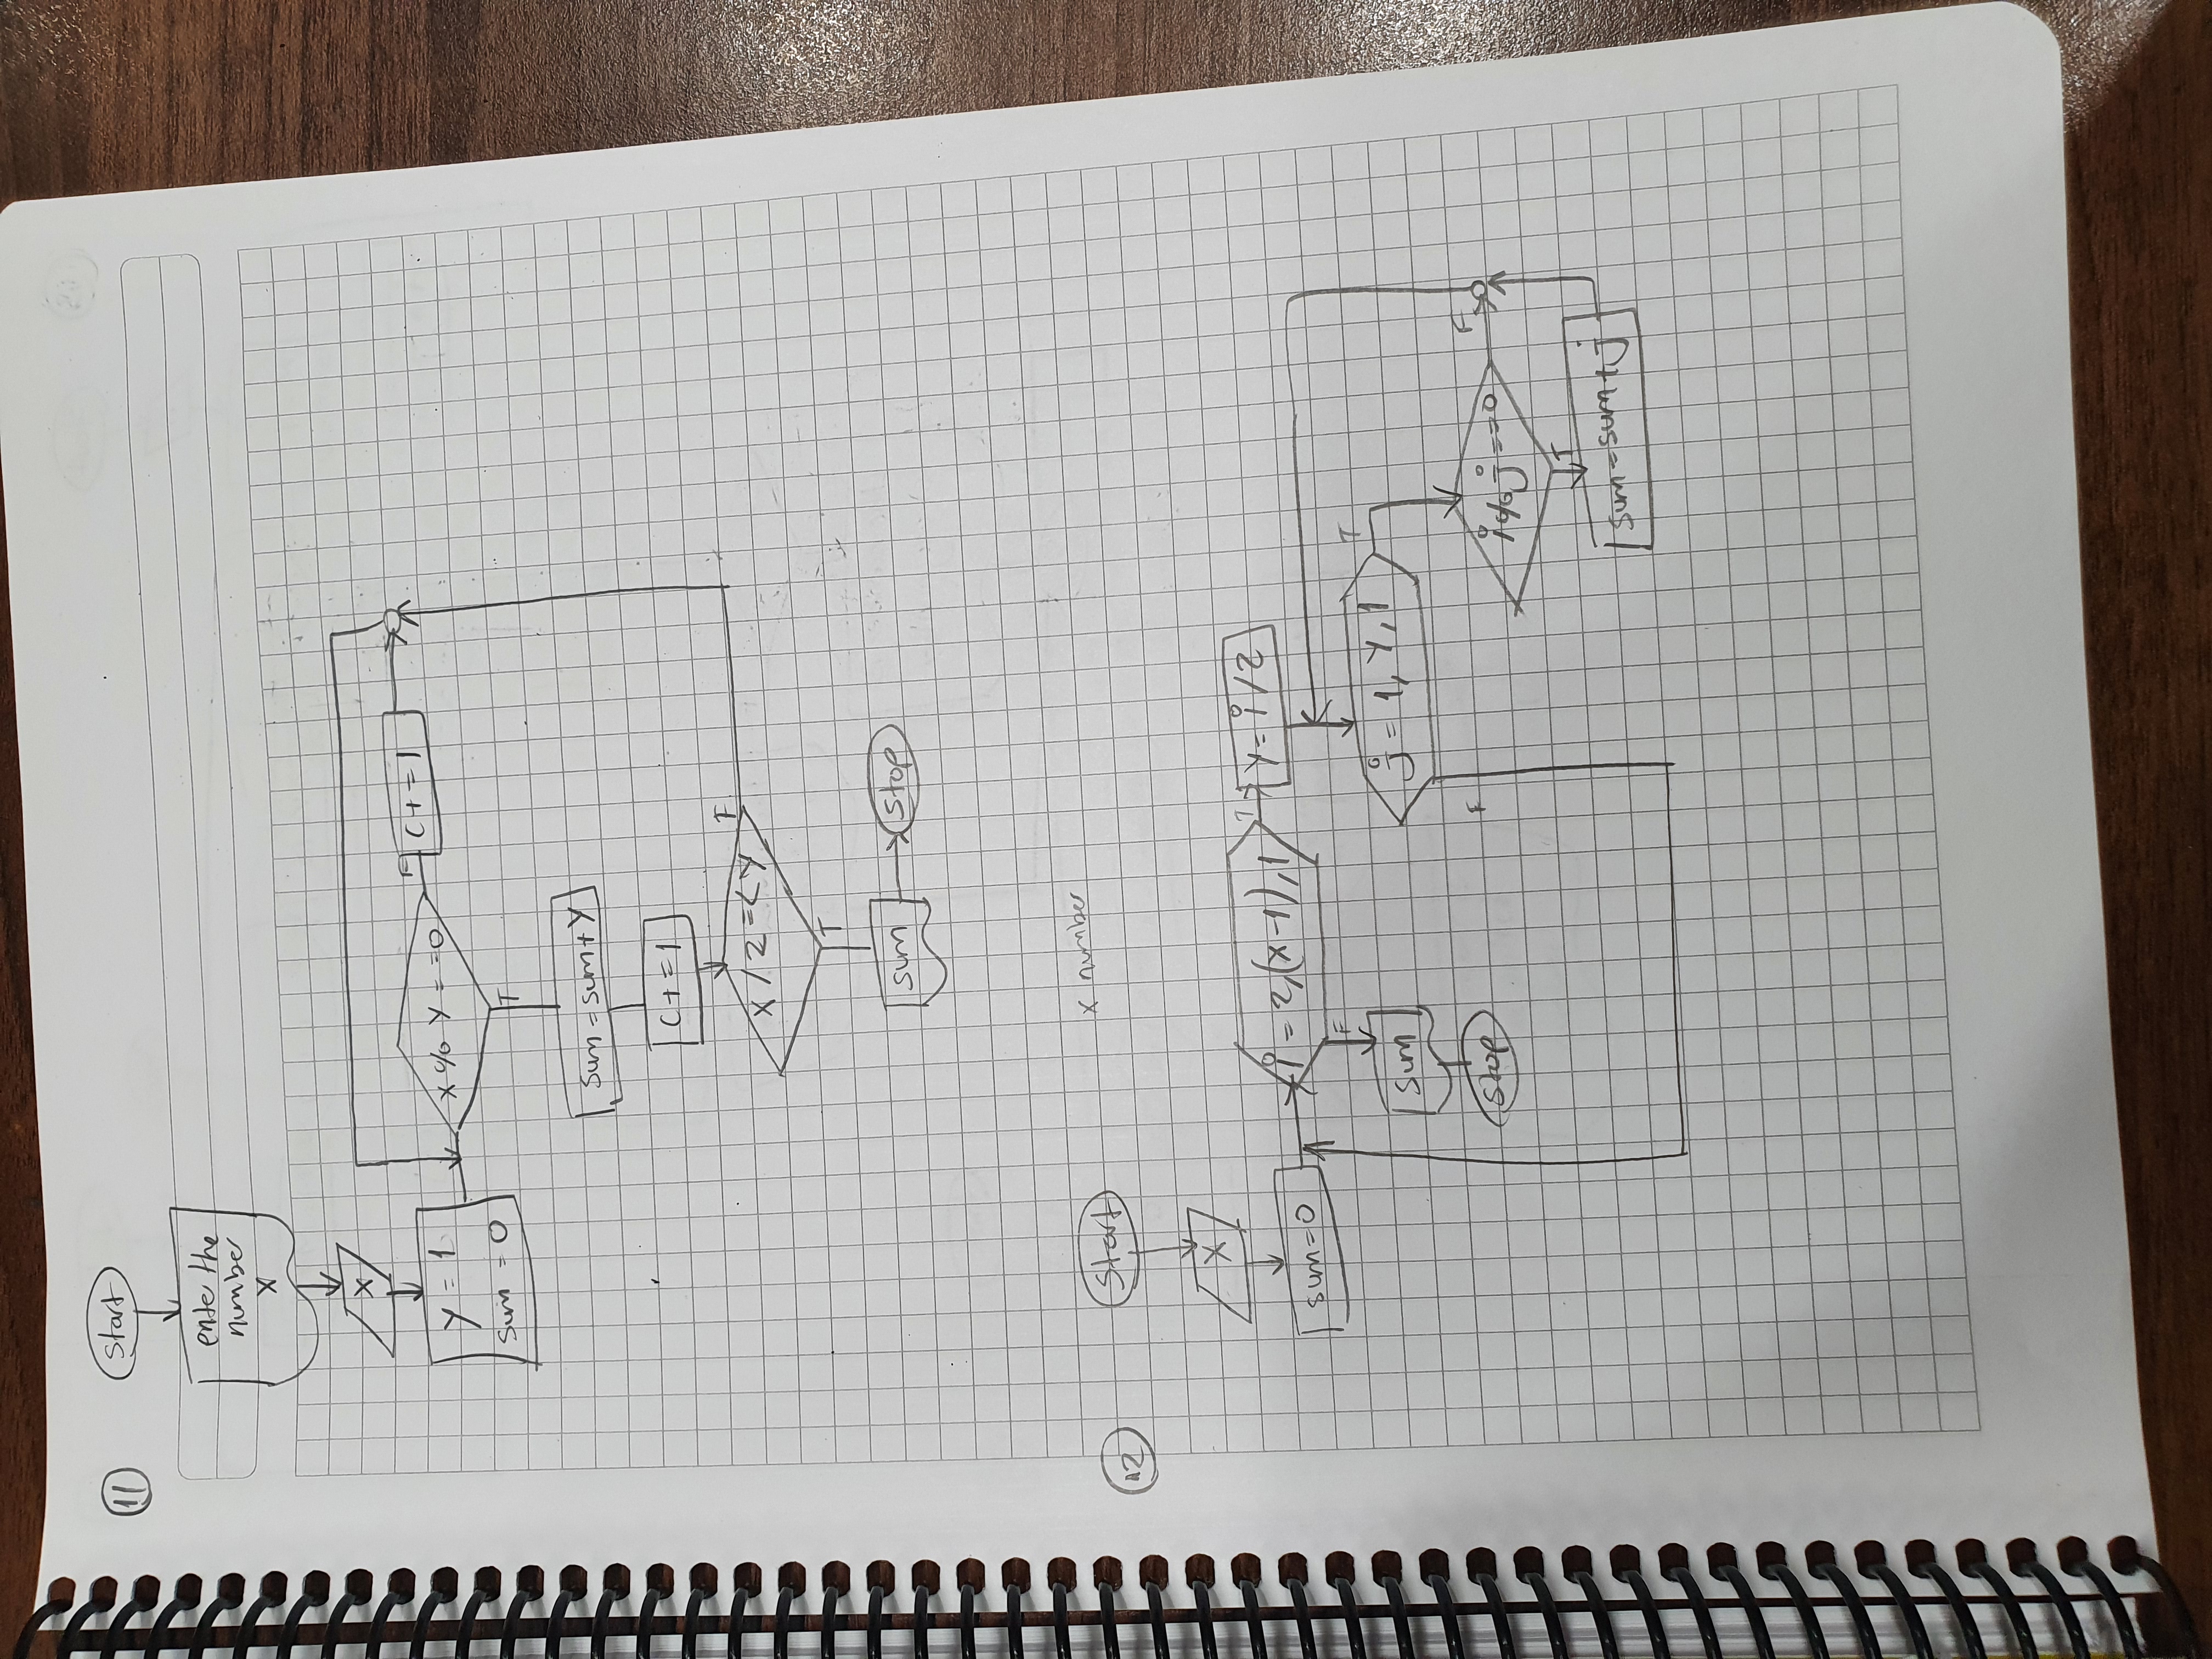 11
Start
enter the
number
x
x
y = 1
sum = 0
x % y = = 0
F
c + = 1
T
sum = sum + y
c + = 1
x / 2 = < y
F
T
sum
stop
x number
12
Start
x
sum = 0
i = 2, (x - 1), 1
T
y = i / 2
F
sum
stop
j = 1, y, 1
T
F
i % j == 0
F
T
sum = sum + j